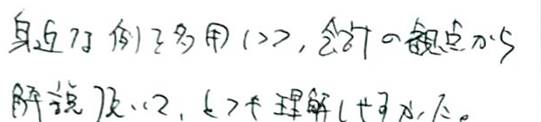 身近な例を多用しつつ、会計の観点から
解説頂いて、とても理解しやすかった。